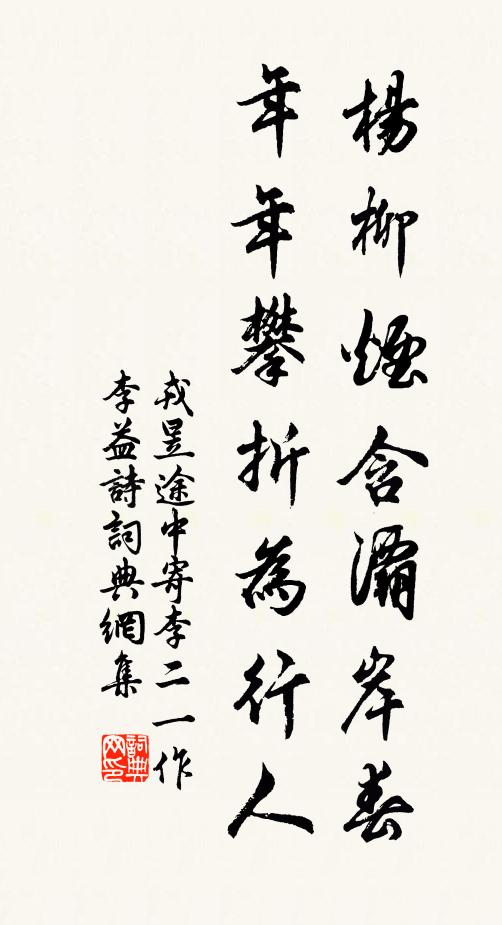 楊柳煙含灞岸春
年年攀折為行人
戎昱途中寄李二一作
李益詩詞典網集
詞典网印